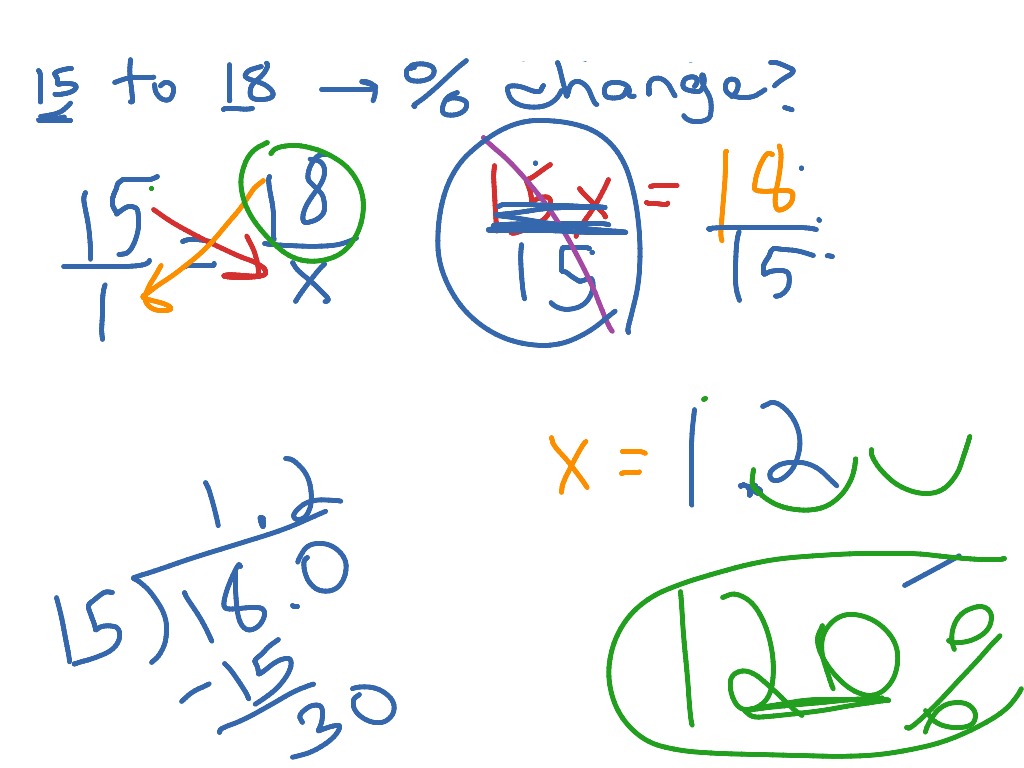 15 to 18 → % change?
15/1 = 18/x
15x/15 = 18/15
x = 1.2
1.2
15)18.0
-15
30
120%